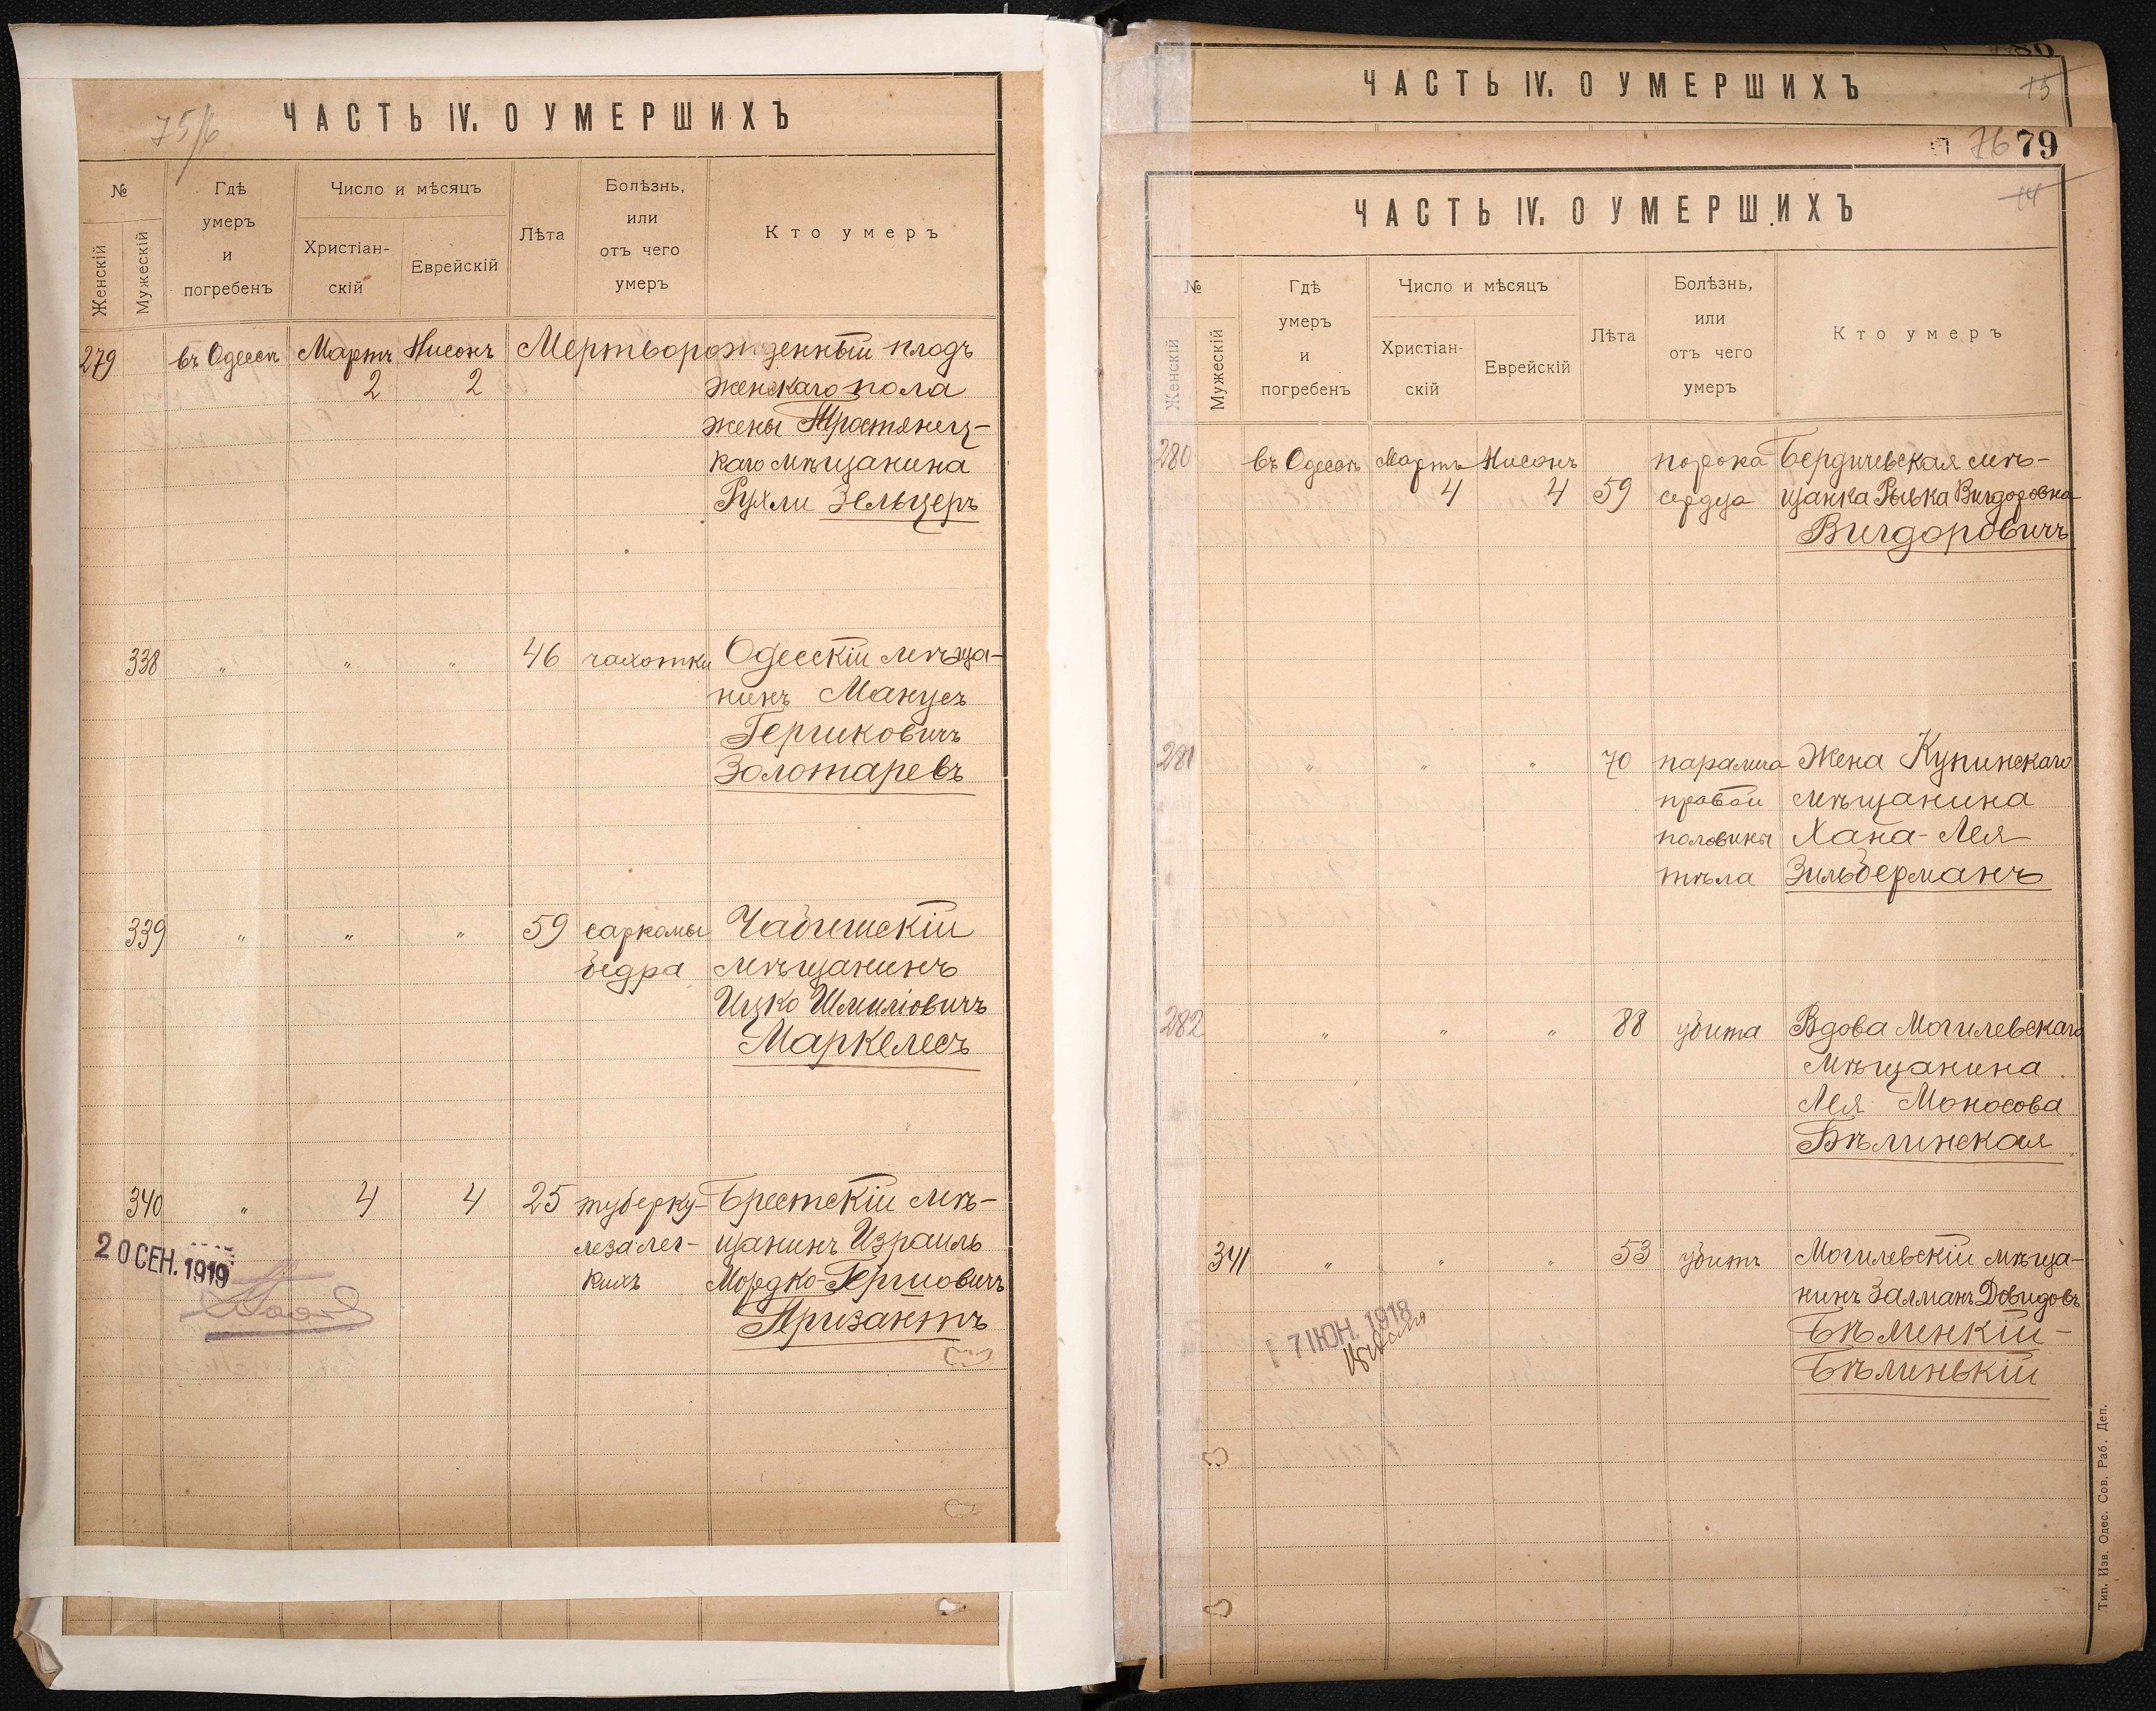 75/6
ЧАСТЬ IV. О УМЕРШИХЪ
№
Женскій
Мужескій
Гдѣ
умеръ
и
погребенъ
Число и мѣсяцъ
Христіан-
скій
Еврейскій
Лѣта
Болѣзнь,
или
отъ чего
умеръ
Кто умеръ
279 въ Одессѣ Мартъ Нисонъ Мертворожденный плодъ
2 2 женскаго пола
жены Тростянец-
каго мѣщанина
Рухли Зельцеръ
338 " " " 46 чахотки Одесскій мѣща-
нинъ Манусъ
Гершковичъ
Золотаревъ
339 " " " 59 саркомы Чабишскій
бедра мѣщанинъ
Ицко Шмиліовичъ
Маркелесъ
340 " 4 4 25 туберку- Брестскій мѣ-
леза лег- щанинъ Израиль
кихъ Мордко-Гершовичъ
Призантъ
20 СЕН. 1919
80
ЧАСТЬ IV. О УМЕРШИХЪ
15
76 79
14
ЧАСТЬ IV. О УМЕРШИХЪ
№
Женскій
Мужескій
Гдѣ
умеръ
и
погребенъ
Число и мѣсяцъ
Христіан-
скій
Еврейскій
Лѣта
Болѣзнь,
или
отъ чего
умеръ
Кто умеръ
280 въ Одессѣ Мартъ Нисонъ порока Бердичевская мѣ-
4 4 59 сердца щанка Рывка Вигдоровна
Вигдоровичъ
281 " " " 70 паралича Жена Купинскаго
правой мѣщанина
половины Хана-Лея
тѣла Зильберманъ
282 " " " 88 убита Вдова Могилевскаго
мѣщанина
Лея Моносова
Бѣлинская
341 " " " 53 убитъ Могилевскій мѣща-
нинъ Залманъ Довидовъ
Бѣленкій-
Бѣлинькій
17 ІЮН. 1918
Тип. Изв. Одес. Сов. Раб. Деп.